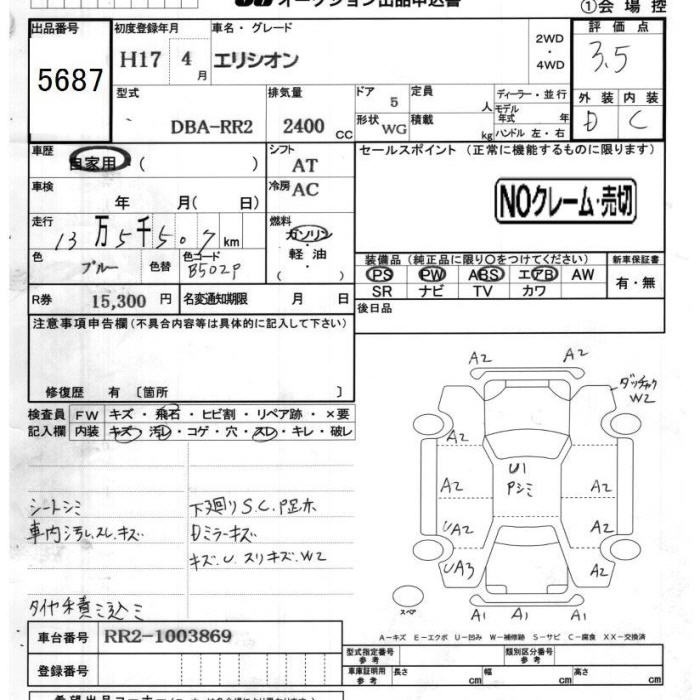 オークション出品申込書
①会場控
出品番号
初度登録年月
車名・グレード
評価点
5687
H17 4月
エリシオン
2WD
・4WD
3.5
型式
排気量
ドア
定員
ディーラー・並行
外装
内装
DBA-RR2
2400 CC
5
人
モデル年式 年
D
C
形状
WG
積載
kg
ハンドル 左・右
車歴
自家用 ( )
シフト
AT
セールスポイント (正常に機能するものに限ります)
車検
年 月( 日)
冷房
AC
NOクレーム・売切
走行
13万5千507km
燃料
ガソリン
・
軽油
( )
色
ブルー
色替
色コード
B502P
装備品 (純正品に限り〇をつけてください)
新車保証書
PS PW ABS エアB AW
SR ナビ TV カワ
有・無
R券
15,300 円
名変通知期限
月 日
後日品
注意事項申告欄(不具合内容等は具体的に記入して下さい)
修復歴 有 〔箇所 〕
検査員
記入欄
FW
キズ・飛石・ヒビ割・リペア跡・×要
内装
キズ・汚レ・コゲ・穴・スレ・キレ・破レ
シートシミ
車内汚レ.スレ.キズ
下廻りS.C.P
Dミラーキズ
キズ.U.スリキズ.W2
A2
A2
W2
A2
U1
Pシミ
A2
A2
UA2
A2
UA3
A2
スペア
A1
A1
A-キズ E-エクボ U-凹み W-補修跡 S-サビ C-腐食 XX-交換済
車台番号
RR2-1003869
登録番号
型式指定番号
参考
類別区分番号
参考
車庫証明用
参考
長さ cm
幅 cm
高さ cm